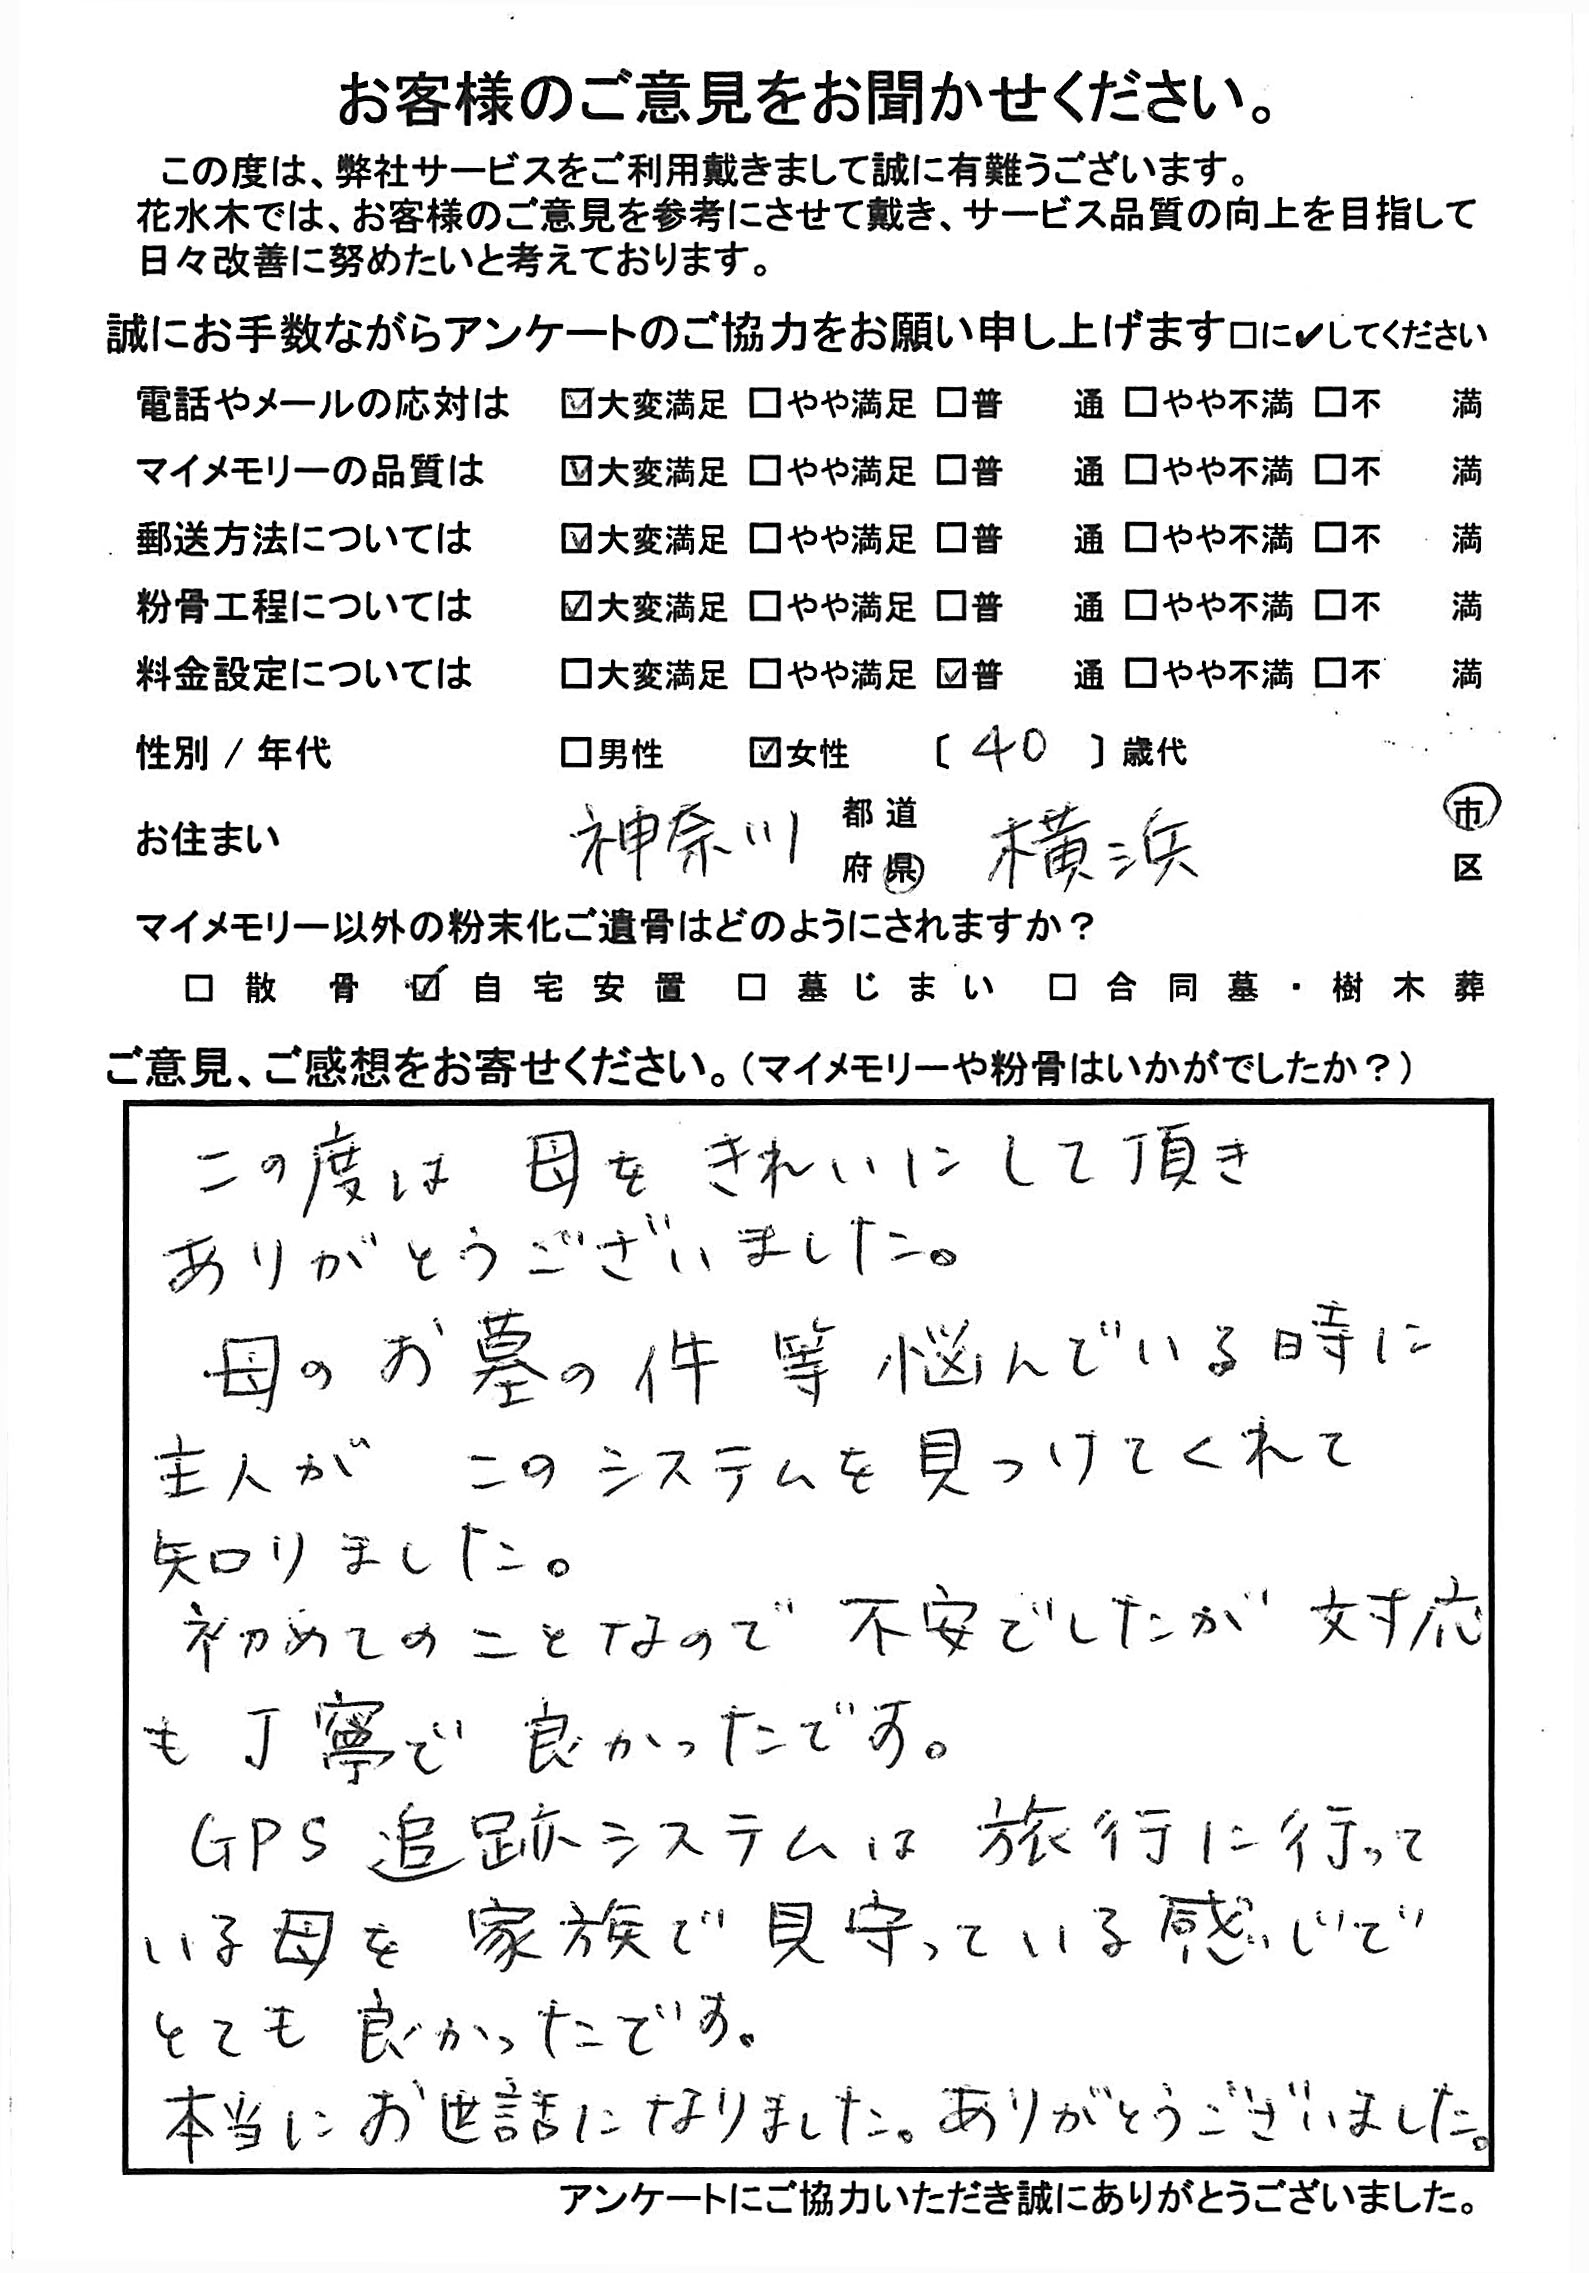 お客様のご意見をお聞かせください。
この度は、弊社サービスをご利用戴きまして誠に有難うございます。
花水木では、お客様のご意見を参考にさせて戴き、サービス品質の向上を目指して
日々改善に努めたいと考えております。
誠にお手数ながらアンケートのご協力をお願い申し上げます□に✔してください
電話やメールの応対は ☑大変満足 □やや満足 □普 通 □やや不満 □不 満
マイメモリーの品質は ☑大変満足 □やや満足 □普 通 □やや不満 □不 満
郵送方法については ☑大変満足 □やや満足 □普 通 □やや不満 □不 満
粉骨工程については ☑大変満足 □やや満足 □普 通 □やや不満 □不 満
料金設定については □大変満足 □やや満足 ☑普 通 □やや不満 □不 満
性別 / 年代 □男性 ☑女性 〔 40 〕歳代
お住まい 神奈川 都道府県 横浜 市区
マイメモリー以外の粉末化ご遺骨はどのようにされますか？
□ 散骨 ☑ 自宅安置 □ 墓じまい □ 合同墓・樹木葬
ご意見、ご感想をお寄せください。（マイメモリーや粉骨はいかがでしたか？）
この度は 母を きれいにして頂き
ありがとうございました。
母のお墓の件 等 悩んでいる時に
主人が このシステムを見つけてくれて
知りました。
初めてのことなので 不安でしたが 対応
も丁寧で 良かったです。
GPS追跡システムは 旅行に行って
いる母を 家族で見守っている感じで
とても良かったです。
本当にお世話になりました。ありがとうございました。
アンケートにご協力いただき誠にありがとうございました。